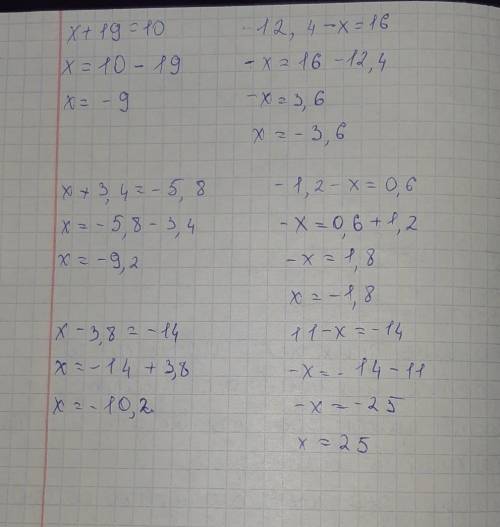 x+19=10
x=10-19
x=-9
x+3,4=-5,8
x=-5,8-3,4
x=-9,2
x-3,8=-14
x=-14+3,8
x=-10,2
-12,4-x=16
-x=16-12,4
-x=3,6
x=-3,6
-1,2-x=0,6
-x=0,6+1,2
-x=1,8
x=-1,8
11-x=-14
-x=-14-11
-x=-25
x=25